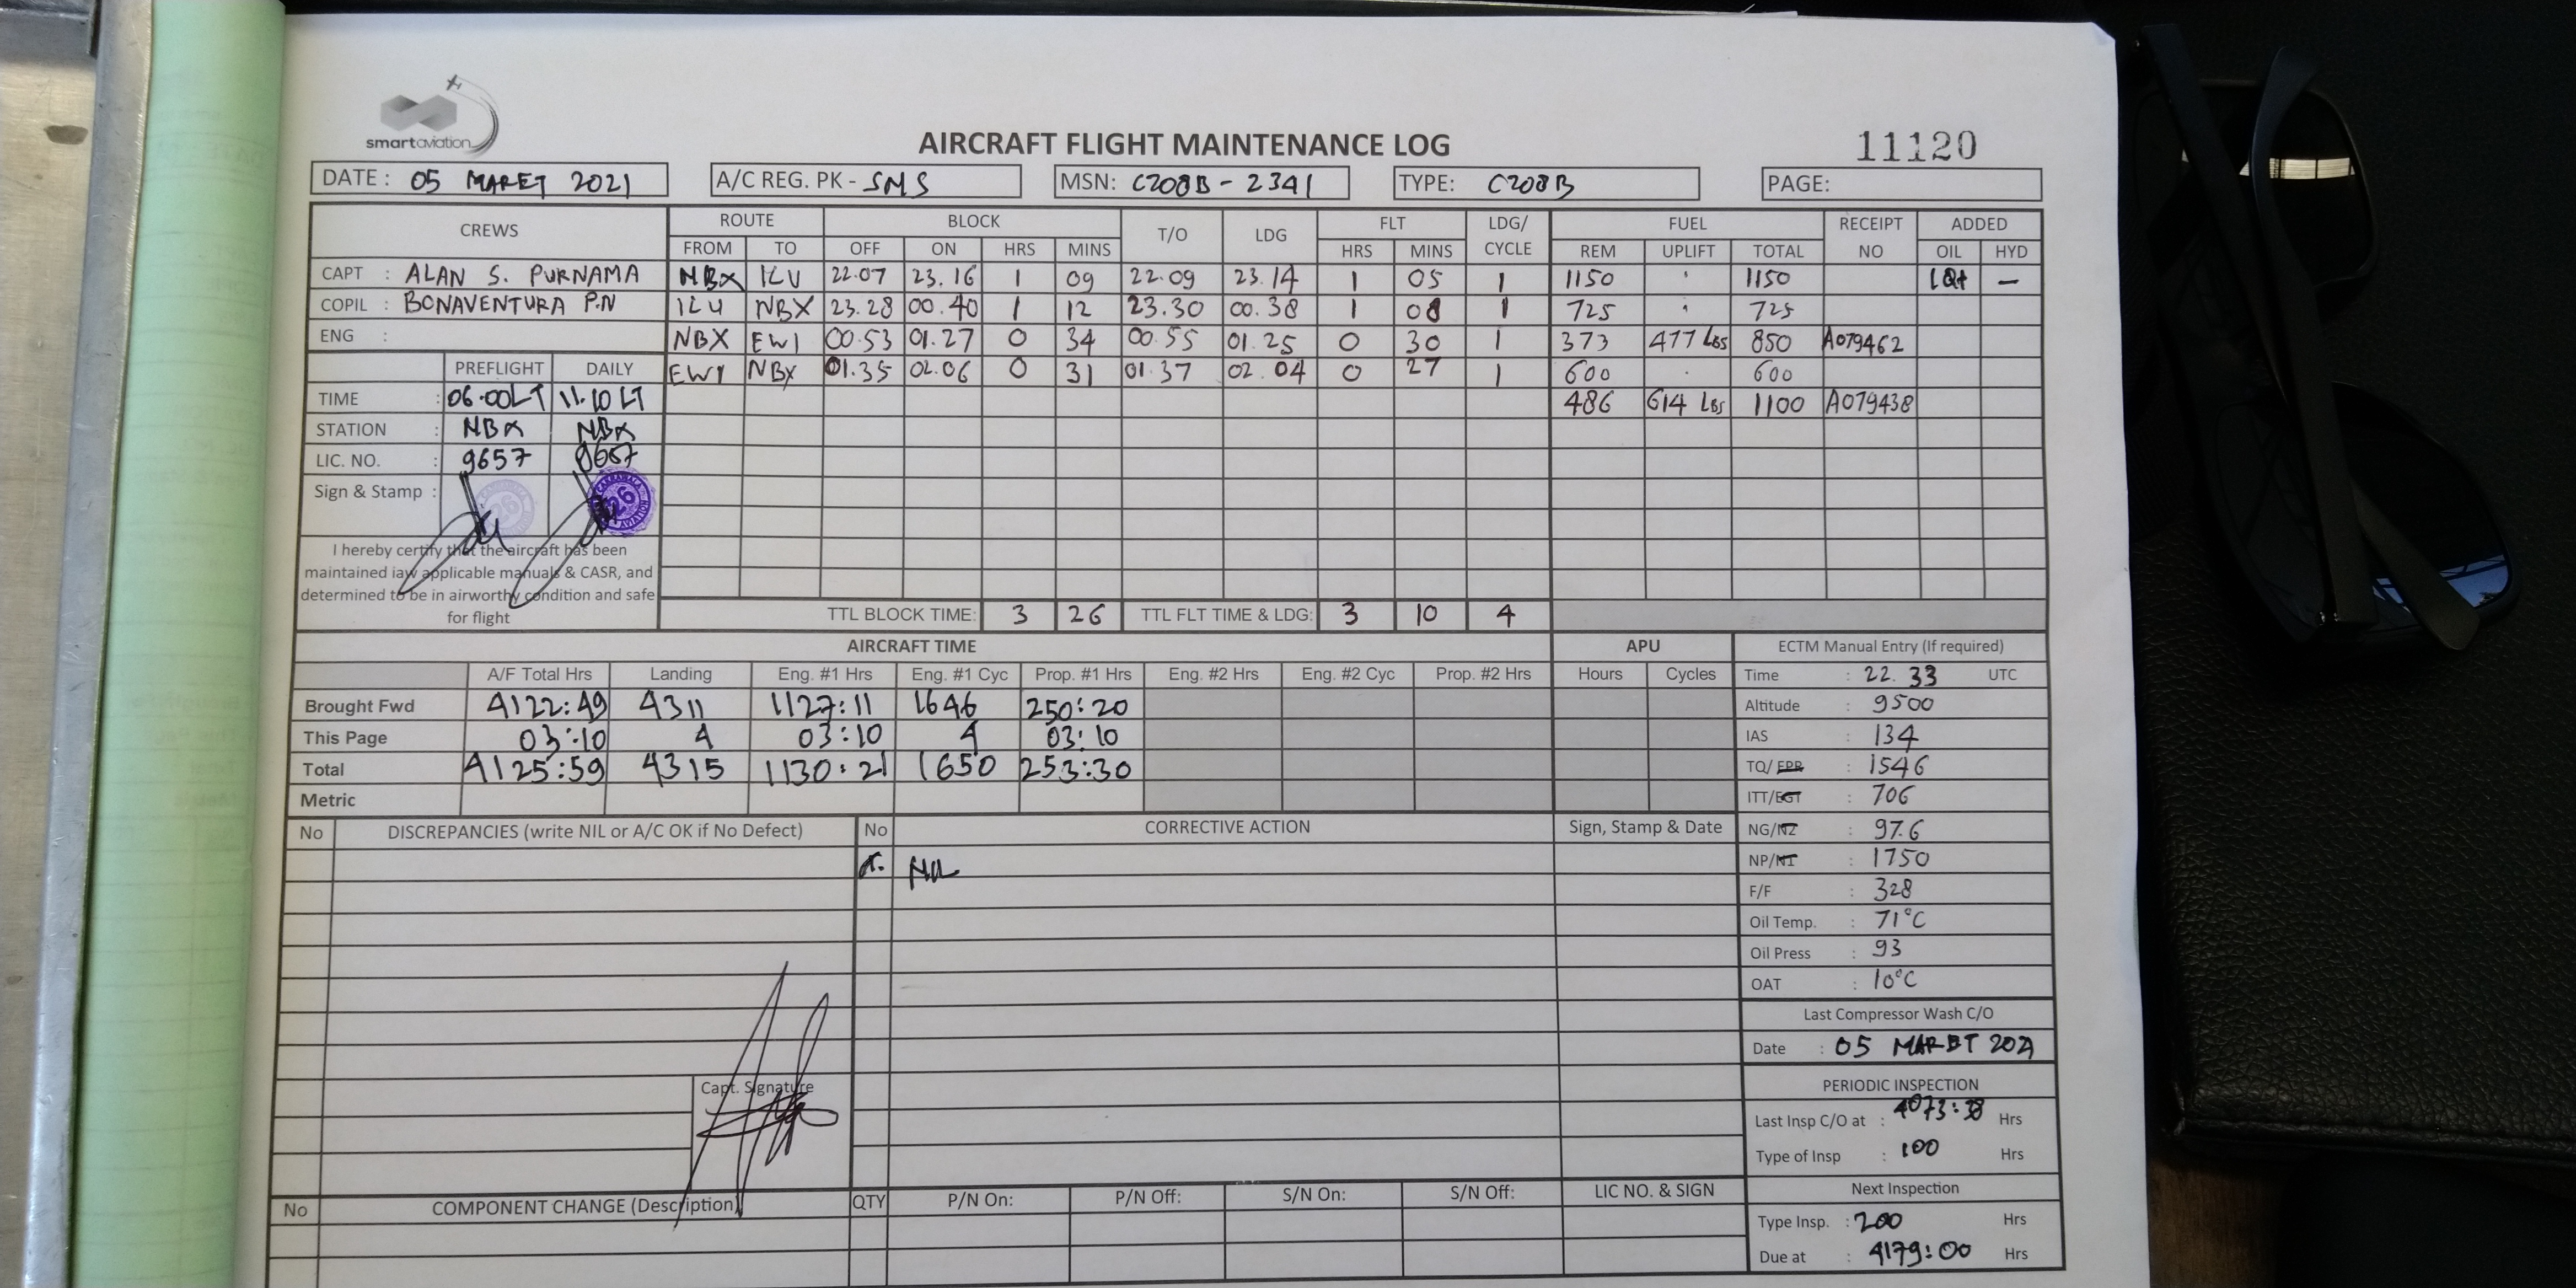 smartaviation
AIRCRAFT FLIGHT MAINTENANCE LOG 11120
DATE : 05 MARET 2021 A/C REG. PK - SNS MSN: C208B - 2341 TYPE: C208B PAGE:
CREWS ROUTE BLOCK T/O LDG FLT LDG/ CYCLE FUEL RECEIPT NO ADDED
FROM TO OFF ON HRS MINS HRS MINS REM UPLIFT TOTAL OIL HYD
CAPT : ALAN S. PURNAMA NBX ILU 22.07 23.16 1 09 22.09 23.14 1 05 1 1150 1150 1Qt —
COPIL : BONAVENTURA P.N ILU NBX 23.28 00.40 1 12 23.30 00.38 1 08 1 725 725
ENG : NBX EWI 00.53 01.27 0 34 00.55 01.25 0 30 1 373 477 Lbs 850 A079462
PREFLIGHT DAILY EWI NBX 01.35 02.06 0 31 01.37 02.04 0 27 1 600 600
TIME : 06.00LT 11.10 LT 486 614 Lbs 1100 A079438
STATION : NBX NBX
LIC. NO. : 9657 9657
Sign & Stamp : 26 26
I hereby certify that the aircraft has been
maintained iaw applicable manuals & CASR, and
determined to be in airworthy condition and safe
for flight
TTL BLOCK TIME: 3 26 TTL FLT TIME & LDG: 3 10 4
AIRCRAFT TIME APU ECTM Manual Entry (If required)
A/F Total Hrs Landing Eng. #1 Hrs Eng. #1 Cyc Prop. #1 Hrs Eng. #2 Hrs Eng. #2 Cyc Prop. #2 Hrs Hours Cycles Time : 22.33 UTC
Brought Fwd 4122:49 4311 1127:11 1646 250:20 Altitude : 9500
This Page 03:10 4 03:10 4 03:10 IAS : 134
Total 4125:59 4315 1130:21 1650 253:30 TQ/EPR : 1546
Metric ITT/EGT : 706
No DISCREPANCIES (write NIL or A/C OK if No Defect) No CORRECTIVE ACTION Sign, Stamp & Date NG/N2 : 97.6
NIL NP/N1 : 1750
F/F : 328
Oil Temp. : 71°C
Oil Press : 93
OAT : 10°C
Last Compressor Wash C/O
Date : 05 MARET 2021
Capt. Signature
PERIODIC INSPECTION
Last Insp C/O at : 4073:38 Hrs
Type of Insp : 100 Hrs
No COMPONENT CHANGE (Description) QTY P/N On: P/N Off: S/N On: S/N Off: LIC NO. & SIGN Next Inspection
Type Insp. : 200 Hrs
Due at : 4179:00 Hrs